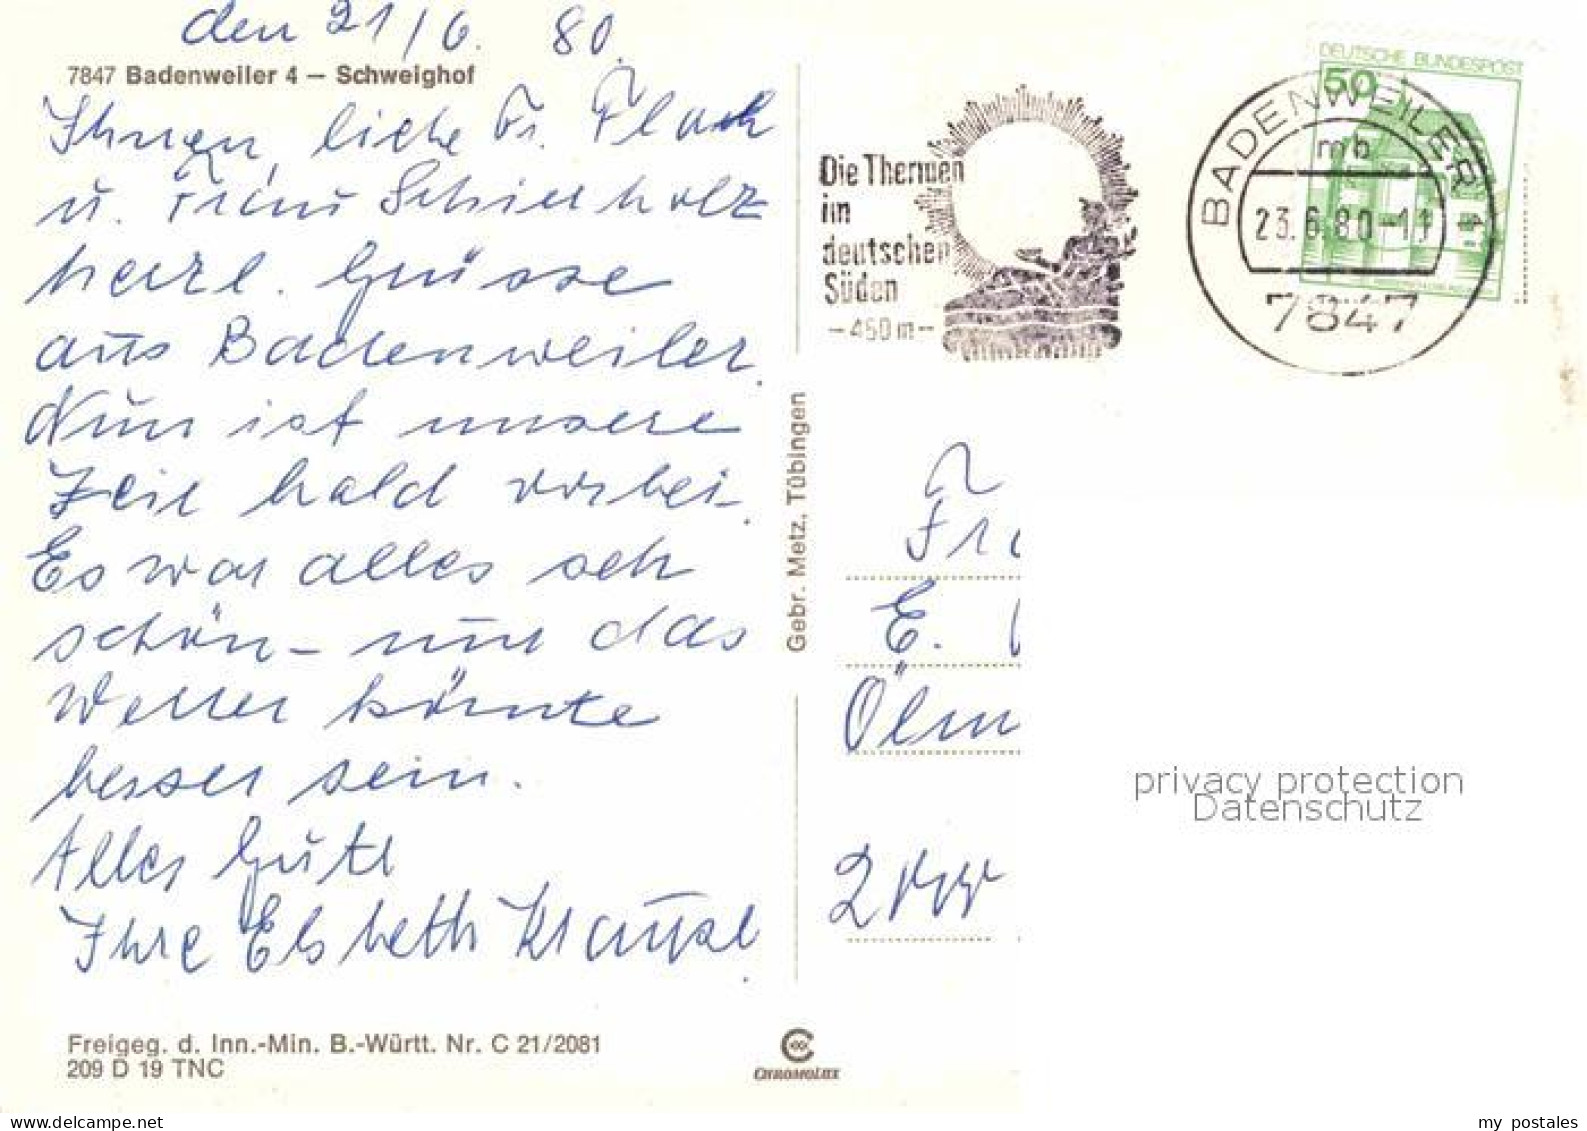 den 21/6. 80.
7847 Badenweiler 4 – Schweighof
Ihnen, liebe Fr.
u. Frau Schierholz
herzl. Grüsse
aus Badenweiler.
Nun ist unsere
Zeit bald vorbei.
Es war alles sehr
schön – nur das
Wetter könnte
besser sein.
Alles Gute
Ihre Elsbeth
Freigeg. d. Inn.-Min. B.-Württ. Nr. C 21/2081
209 D 19 TNC
Gebr. Metz, Tübingen
CHROMOLUX
Die Thermen
im
deutschen
Süden
–450 m–
DEUTSCHE BUNDESPOST
50
BADENWEILER 1
mb
23.6.80-11
7847
E.
Ölm
privacy protection
Datenschutz
my postales